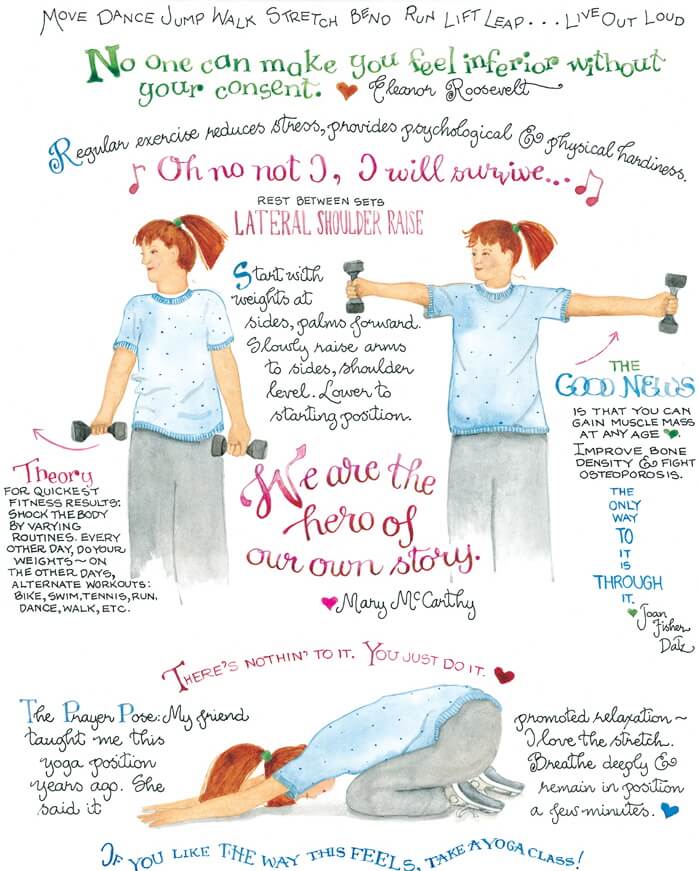 MOVE DANCE JUMP WALK STRETCH BEND RUN LIFT LEAP... LIVE OUT LOUD
No one can make you feel inferior without
your consent. Eleanor Roosevelt
Regular exercise reduces stress, provides psychological & physical hardiness.
Oh no not I, I will survive...
REST BETWEEN SETS
LATERAL SHOULDER RAISE
Start with
weights at
sides, palms forward.
Slowly raise arms
to sides, shoulder
level. Lower to
starting position.
THE
GOOD NEWS
IS THAT YOU CAN
GAIN MUSCLE MASS
AT ANY AGE.
IMPROVE BONE
DENSITY & FIGHT
OSTEOPOROSIS.
THE
ONLY
WAY
TO
IT
IS
THROUGH
IT.
Joan
Fisher
Datz
Theory
FOR QUICKEST
FITNESS RESULTS:
SHOCK THE BODY
BY VARYING
ROUTINES. EVERY
OTHER DAY, DO YOUR
WEIGHTS~ON
THE OTHER DAYS,
ALTERNATE WORKOUTS:
BIKE, SWIM, TENNIS, RUN,
DANCE, WALK, ETC.
We are the
hero of
our own story.
Mary McCarthy
THERE'S NOTHIN' TO IT. YOU JUST DO IT.
The Prayer Pose: My friend
taught me this
yoga position
years ago. She
said it
promoted relaxation~
I love the stretch.
Breathe deeply &
remain in position
a few minutes.
IF YOU LIKE THE WAY THIS FEELS, TAKE A YOGA CLASS!